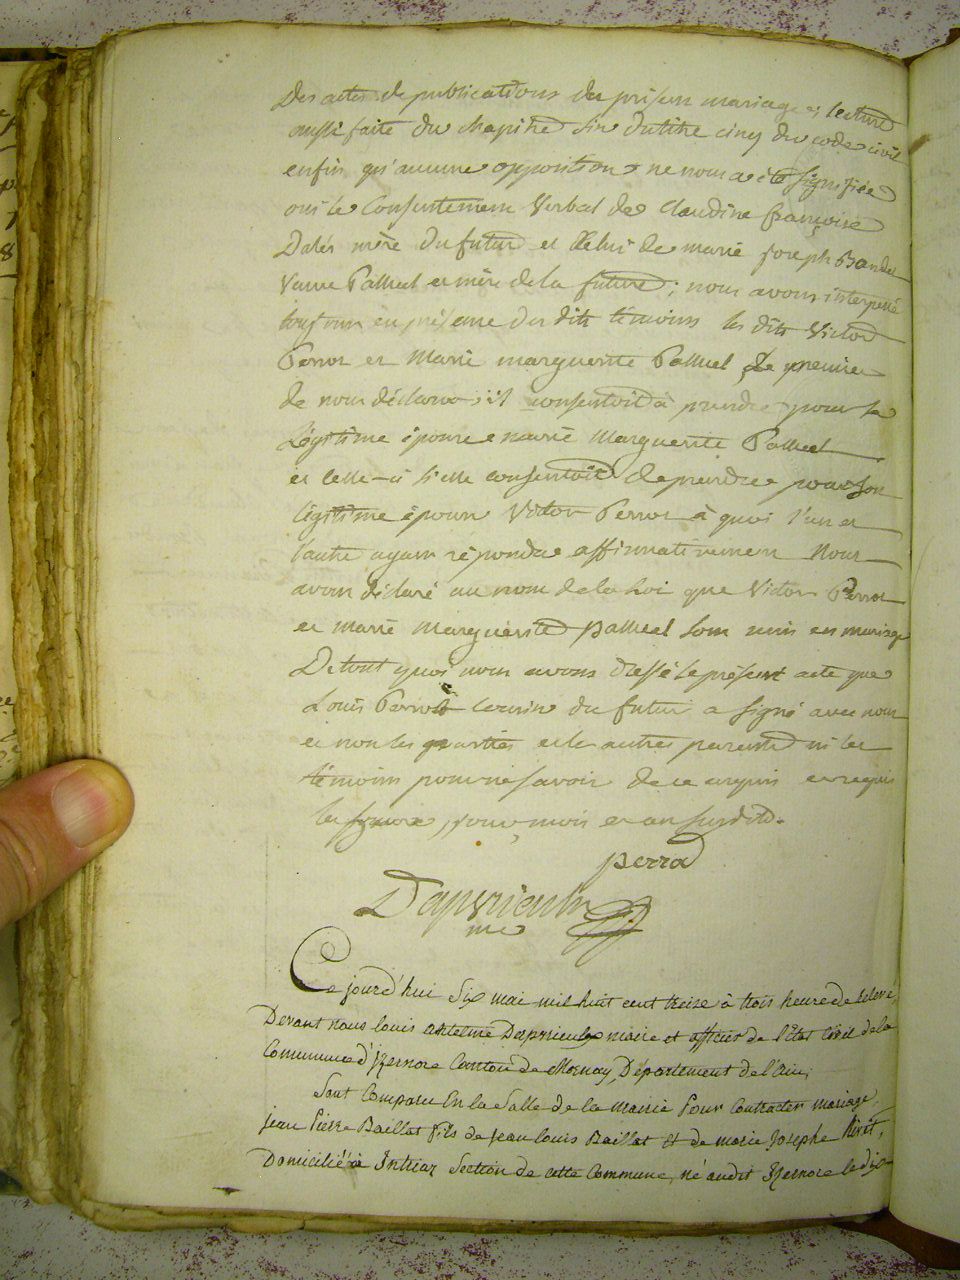 Des actes de publications du present mariage et lecture
aussi faite du chapitre six du titre cinq du code civil
enfin qu'aucune opposition ne nous a été signifiée
oui le consentement verbal de Claudine françoise
mère du futur et celui de marie joseph
Veuve Palluel et mère de la future; nous avons interpellé
toujours en présence des dits témoins les dits Victor
Perrot et Marie marguerite Palluel le premier
de nous déclarer s'il consentoit à prendre pour sa
légitime épouse marie Marguerite Palluel
et celle-ci si elle consentoit de prendre pour son
légitime époux Victor Perrot à quoi l'un et
l'autre ayant répondu affirmativement Nous
avons déclaré au nom de la Loi que Victor Perrot
et marie Marguerite palluel sont unis en mariage
De tout quoi nous avons dressé le présent acte que
Louis Perrot cousin du futur a signé avec nous
et non les parties et les autres parents ni les
témoins pour ne savoir de ce enquis et requis
les jour, mois et an susdits.
perrod
Dapvrieulx
me
Ce jourd'hui Six mai mil huit cent treize à trois heure de relevé,
Devant nous louis antelme Dapvrieulx maire et officier de l'état Civil de la
Commune d'Izernore Canton de Mornay, Département de l'Ain,
Sont Comparu En la Salle de la mairie Pour Contracter mariage,
Jean Pierre Baillat fils de Jean louis Baillat et de marie Josephe
Domicilié à Intriaz Section de cette Commune, né audit Izernore le dix